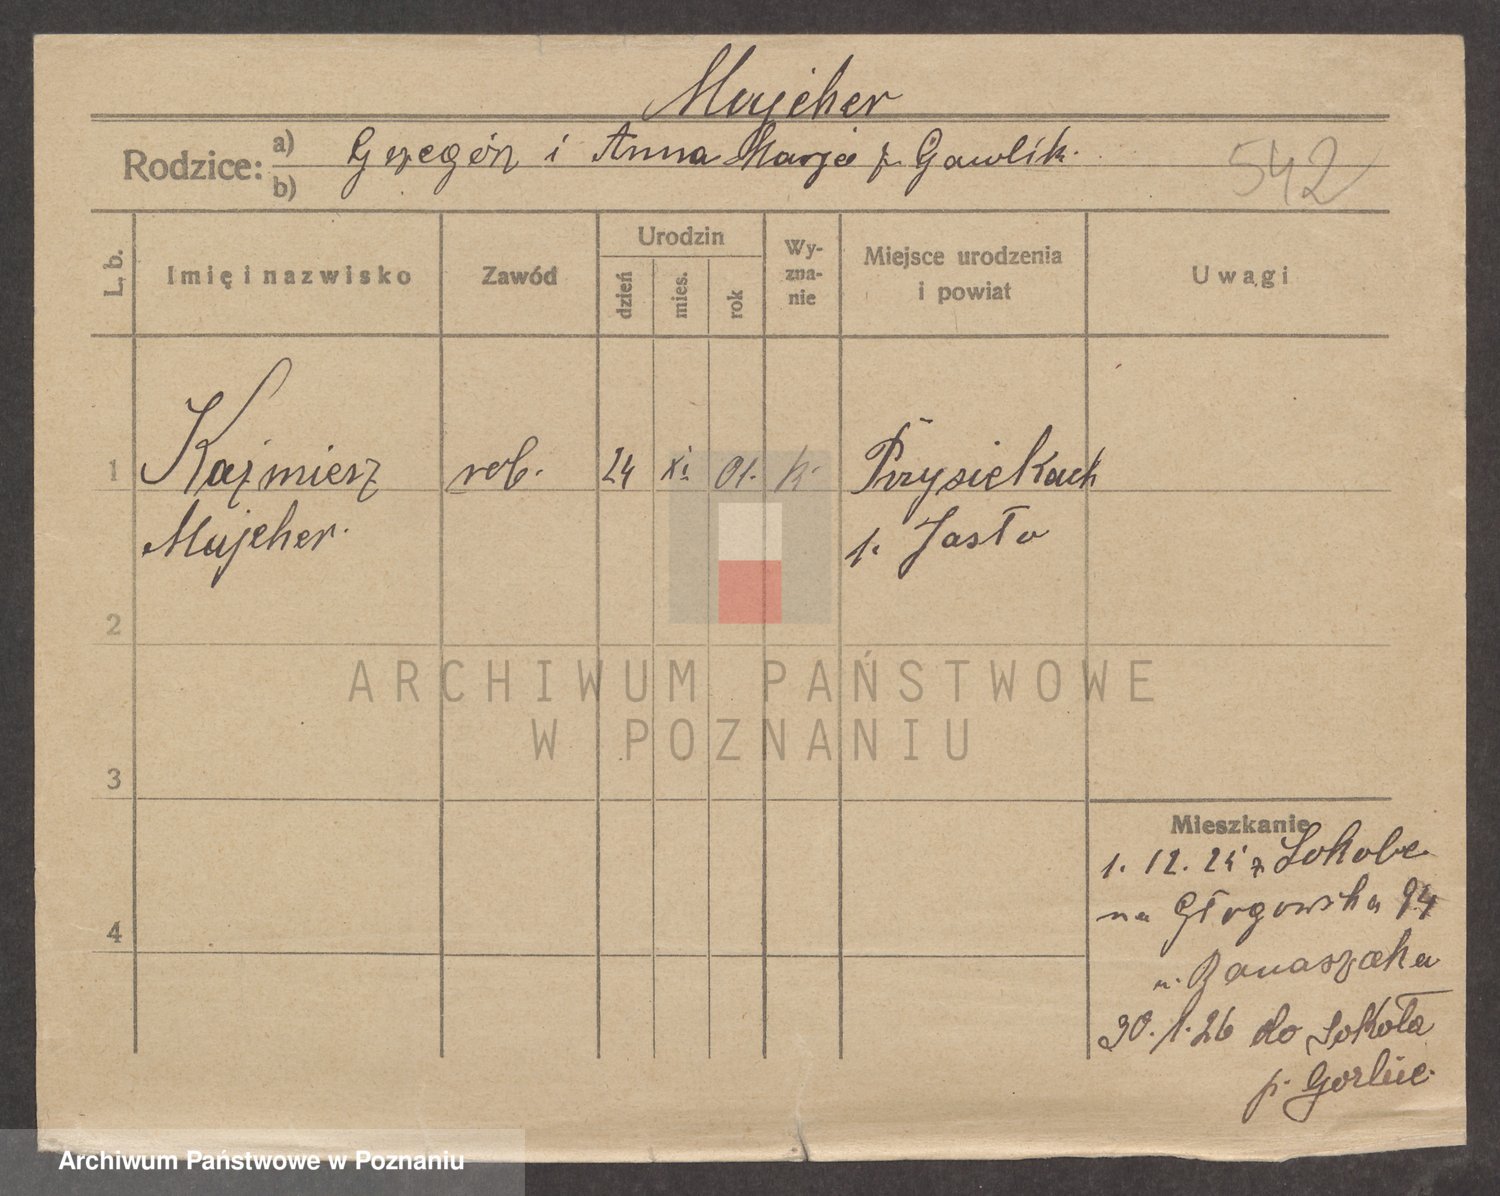 Majcher
Rodzice: a) Grzegórz i Anna Marja z Gawlik.
b)
542
L. b.
Imię i nazwisko
Zawód
Urodzin
dzień
mies.
rok
Wy-
zna-
nie
Miejsce urodzenia
i powiat
Uwagi
1 Kaźmierz rob. 24 XI 01. k. Przysiekach
Majcher. Jasło
2
3
4
ARCHIWUM PAŃSTWOWE
W POZNANIU
Mieszkanie
1. 12. 25 z Sokole
na Głogowska 94
u. Banaszaka
30. 1. 26 do Sokoła
p. Gorlice.
Archiwum Państwowe w Poznaniu